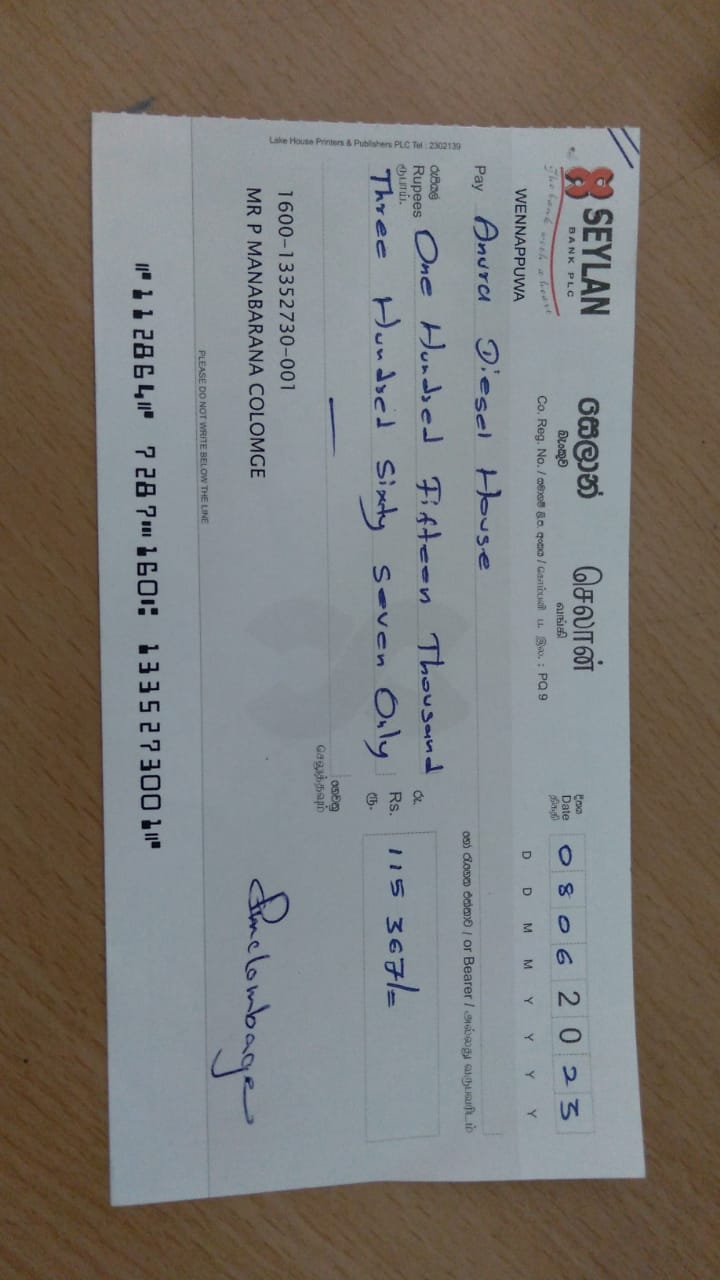 SEYLAN
BANK PLC
The bank with a heart
සෙලාන්
බැංකුව
செலான்
வங்கி
Co. Reg. No. / PQ 9
WENNAPPUWA
දිනය
Date
திகதி
0 8 0 6 2 0 2 3
D D M M Y Y Y Y
Pay Anura Diesel House
හෝ රැගෙන එන්නාට / or Bearer / அல்லது
රුපියල්
Rupees One Hundred Fifteen Thousand
ரூபாய்.
Three Hundred Sixty Seven Only
රු.
Rs. 115 367/=
ரூ.
Lake House Printers & Publishers PLC Tel : 2302139
1600-13352730-001
MR P MANABARANA COLOMGE
PLEASE DO NOT WRITE BELOW THE LINE
⑈112864⑈ 7287⑉160⑆ 1335273001⑈